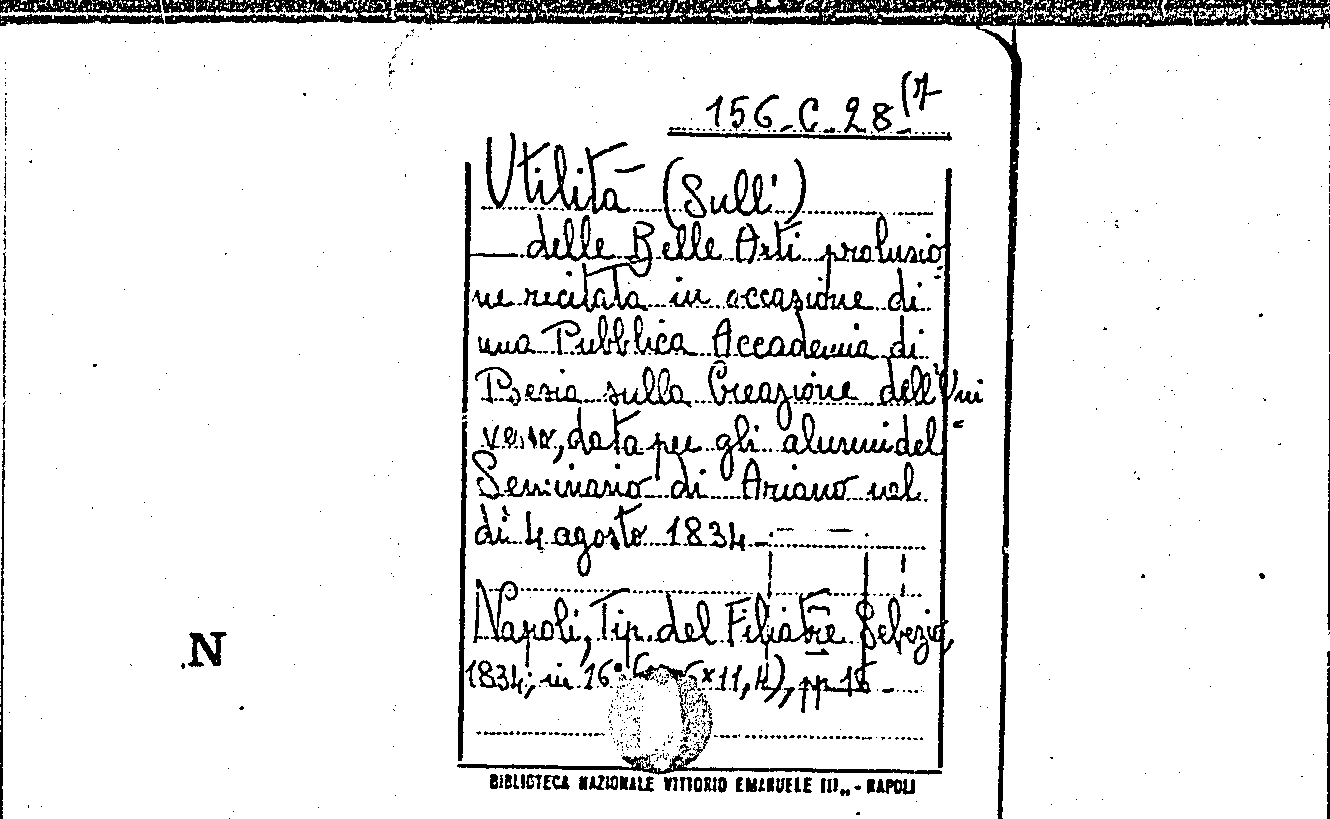 156-C-28(7
Utilità (Sull')
— delle Belle Arti prolusio-
ne recitata in occasione di
una Pubblica Accademia di
Poesia sulla Creazione dell'Uni-
verso, data per gli alunni del
Seminario di Ariano nel
dì 4 agosto 1834 - — —
Napoli, Tip. del Filiatre Sebezio,
1834; in 16° ×11,4), pp 15 -
N
BIBLIOTECA NAZIONALE VITTORIO EMANUELE III„ - NAPOLI